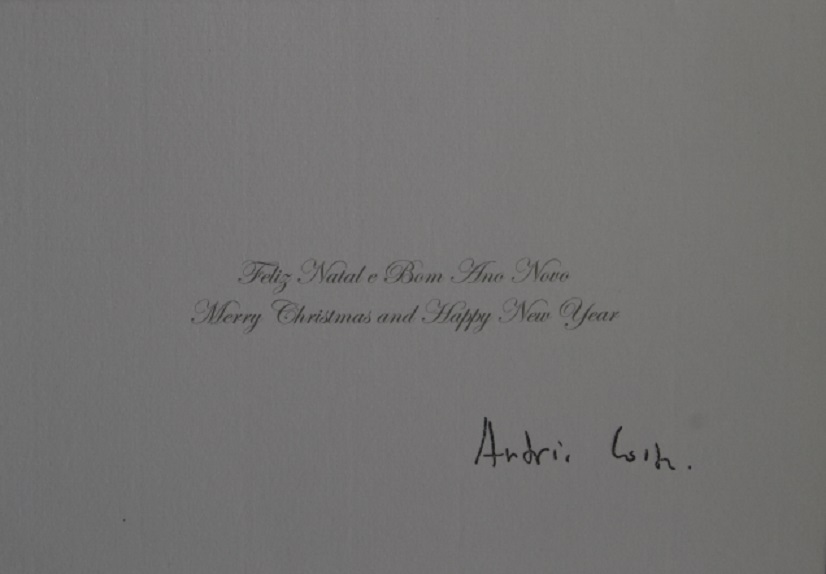 Feliz Natal e Bom Ano Novo
Merry Christmas and Happy New Year